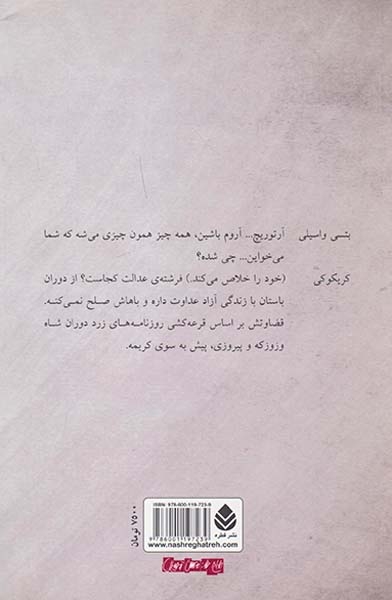 بتسی واسیلی    آرتوریچ... آروم باشین، همه چیز همون چیزی می‌شه که شما
می‌خواین... چی شده؟
کریکوکی    (خود را خلاص می‌کند.) فرشته‌ی عدالت کجاست؟ از دوران
باستان با زندگی آزاد عداوت داره و باهاش صلح نمی‌کنه.
قضاوتش بر اساس قرعه‌کشی روزنامه‌های زرد دوران شاه
وزوزکه و پیروزی، پیش به سوی کریمه.
ISBN: 978-600-119-723-9
9786001197239
۷۵۰۰ تومان
نشر قطره
www.nashreghatreh.com